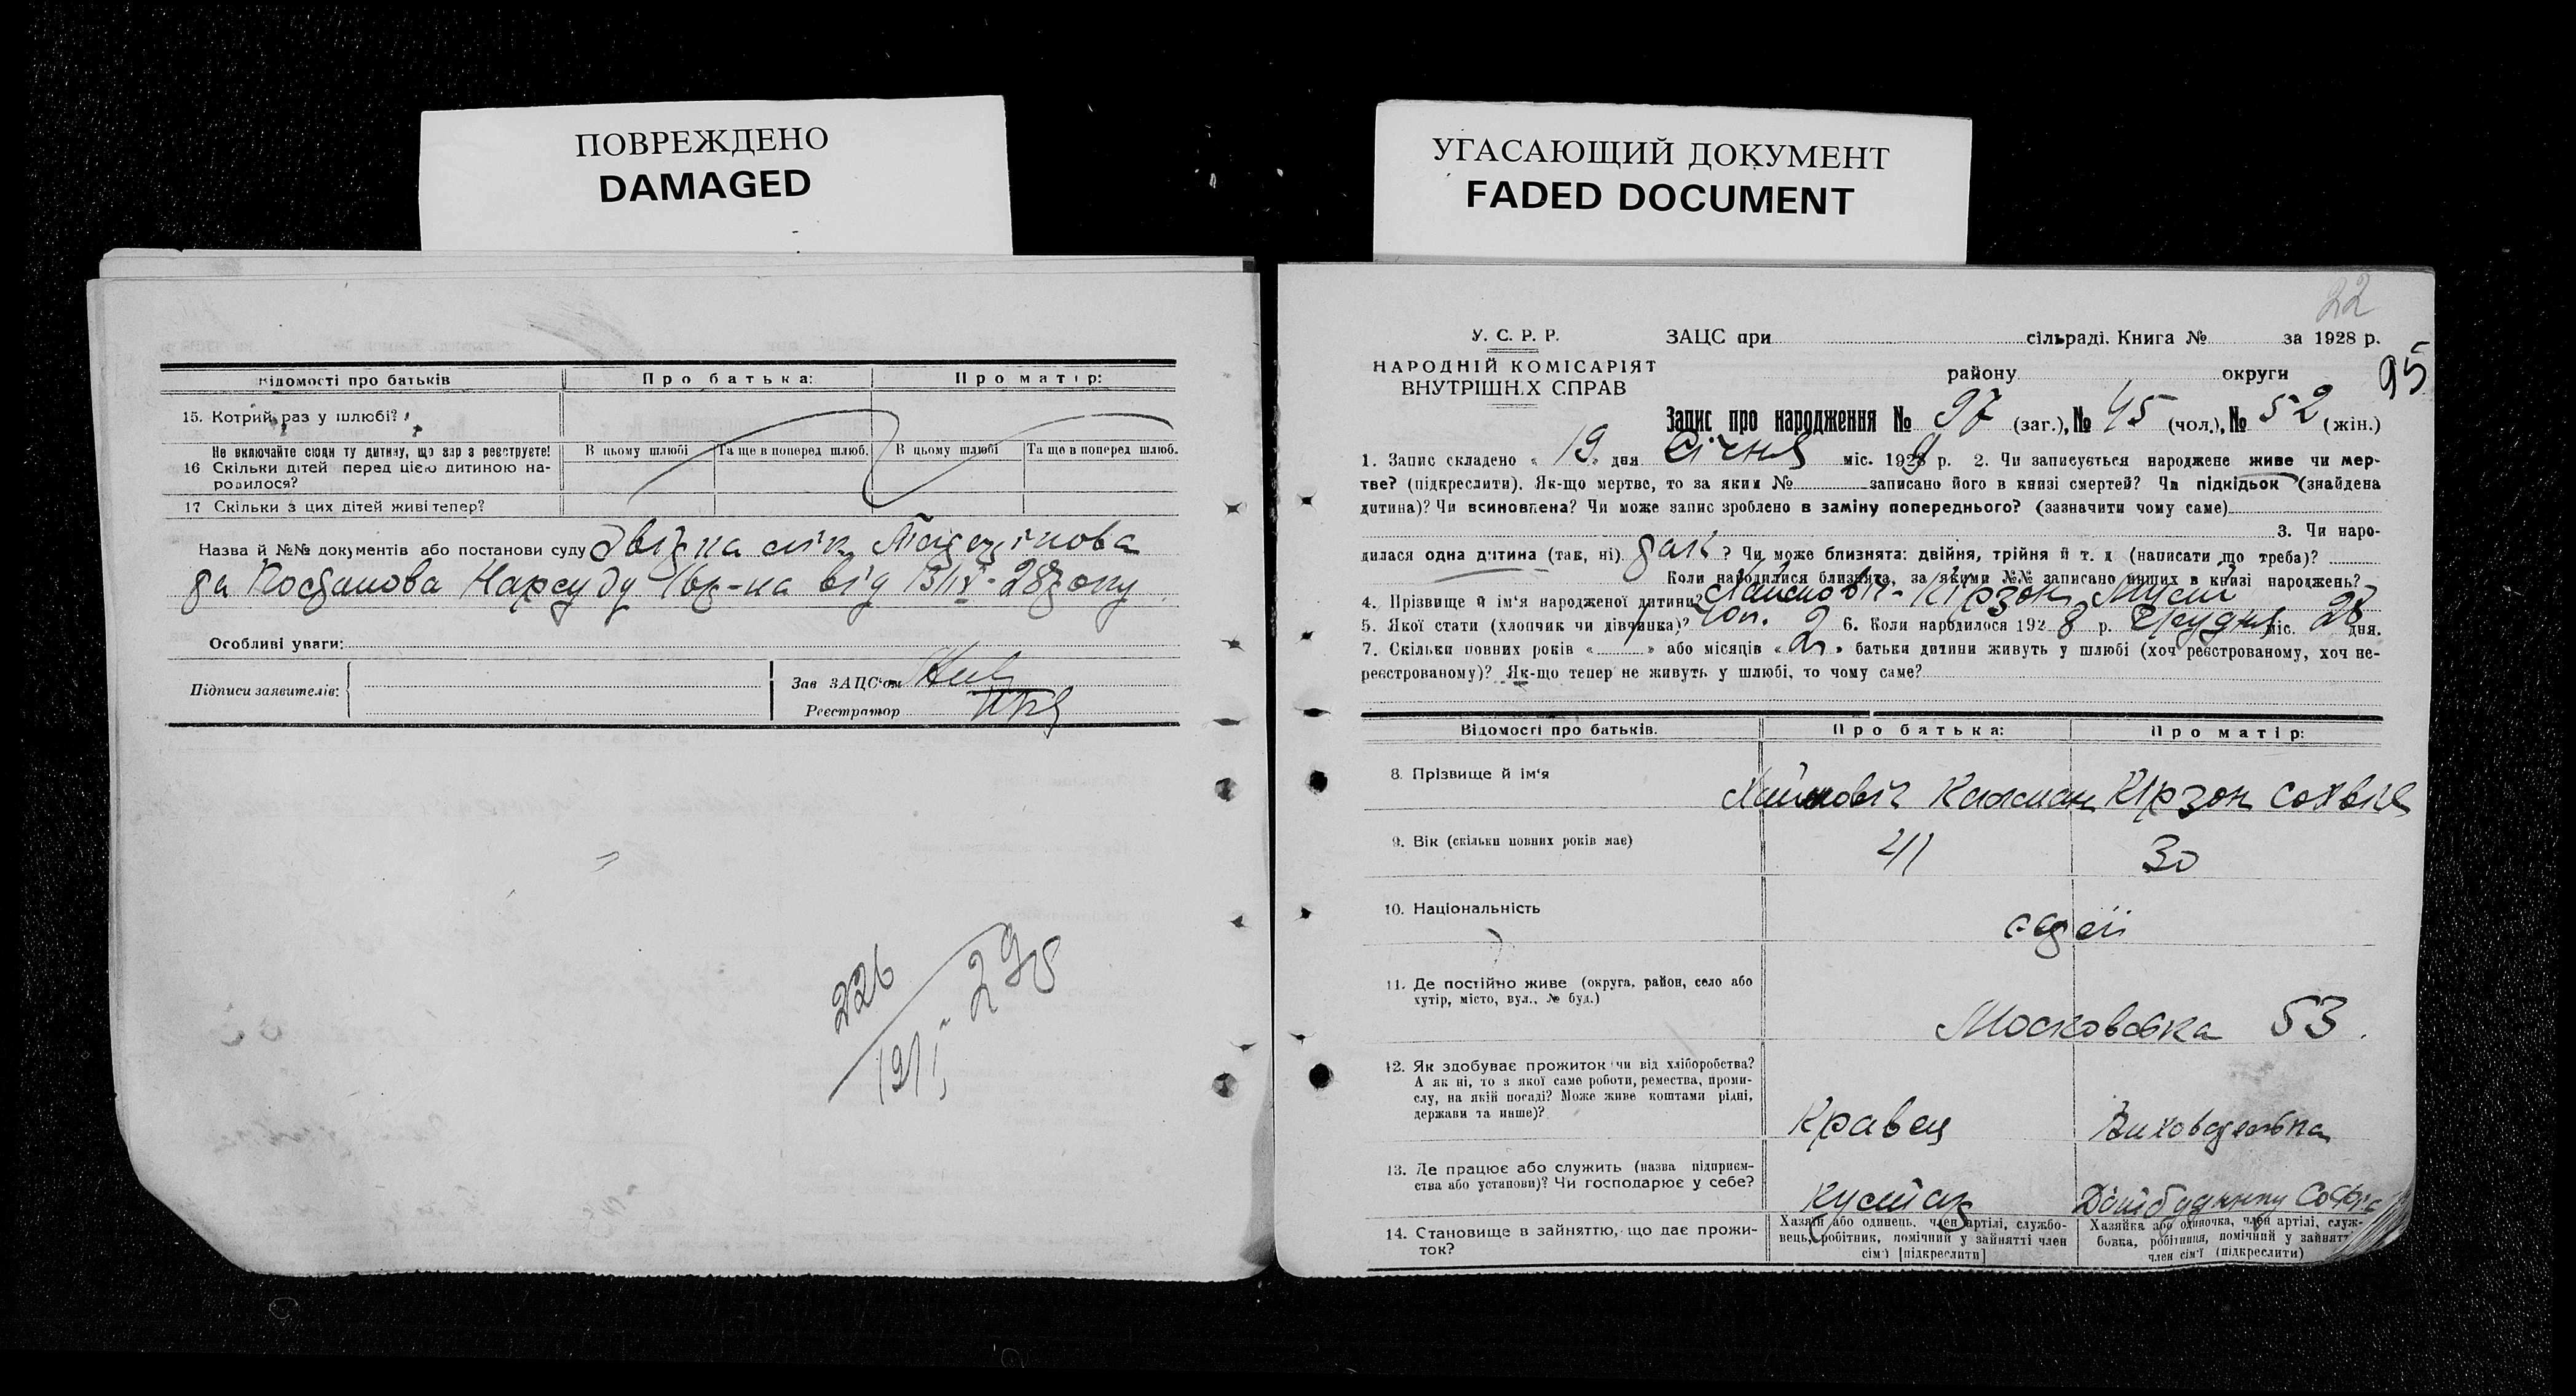 ПОВРЕЖДЕНО
DAMAGED
УГАСАЮЩИЙ ДОКУМЕНТ
FADED DOCUMENT
Відомості про батьків
Про батька:
Про матір:
15. Котрий раз у шлюбі?
Не включайте сюди ту дитину, що зар з реєструєте!
16 Скільки дітей перед цією дитиною на-
родилося?
В цьому шлюбі
Та ще в поперед шлюб.
В цьому шлюбі
Та ще в поперед шлюб.
17 Скільки з цих дітей живі тепер?
Назва й №№ документів або постанови суду
да Постанова Нарсуду від
Особливі уваги:
Підписи заявителів:
Зав ЗАЦС'ом
Реєстратор
226
191
295
22
95
У. С. Р. Р.
НАРОДНІЙ КОМІСАРІЯТ
ВНУТРІШН.Х СПРАВ
ЗАЦС при сільраді. Книга № за 1928 р.
району округи
Запис про народження № 97 (заг.), № 45 (чол.), № 52 (жін.)
1. Запис складено « 19 » дня Січня міс. 1929 р. 2. Чи записується народжене живе чи мер-
тве? (підкреслити). Як-що мертве, то за яким № записано його в книзі смертей? Чи підкідьок (знайдена
дитина)? Чи всиновлена? Чи може запис зроблено в заміну попереднього? (зазначити чому саме)
3. Чи наро-
дилася одна дитина (так, ні) так? Чи може близнята: двійня, трійня й т. д (написати що треба)?
Коли народилися близнята, за якими №№ записано инших в книзі народжень?
4. Прізвище й ім'я народженої дитини? Кірзон
5. Якої стати (хлопчик чи дівчинка)? 6. Коли народилося 1928 р. Грудня міс. 28 дня.
7. Скільки повних років « » або місяців « 2 » батьки дитини живуть у шлюбі (хоч реєстрованому, хоч не-
реєстрованому)? Як-що тепер не живуть у шлюбі, то чому саме?
Відомості про батьків.
Про батька:
Про матір:
8. Прізвище й ім'я
Калман
Кірзон
9. Вік (скільки повних років має)
41
30
10. Національність
11. Де постійно живе (округа, район, село або
хутір, місто, вул., № буд.)
Московська 53.
12. Як здобуває прожиток чи від хліборобства?
А як ні, то з якої саме роботи, ремества, проми-
слу, на якій посаді? Може живе коштами рідні,
держави та инше)?
Кравець
Вихователька
13. Де працює або служить (назва підприєм-
ства або установи)? Чи господарює у себе?
Кустар
14. Становище в зайняттю, що дає прожи-
ток?
Хазяїн або одинець, член артілі, службо-
вець, робітник, помічний у зайнятті член
сім'ї [підкреслити]
Хазяйка або одиночка, член артілі, служ-
бовка, робітниця, помічний у зайнятт
член сім'ї (підкреслити)